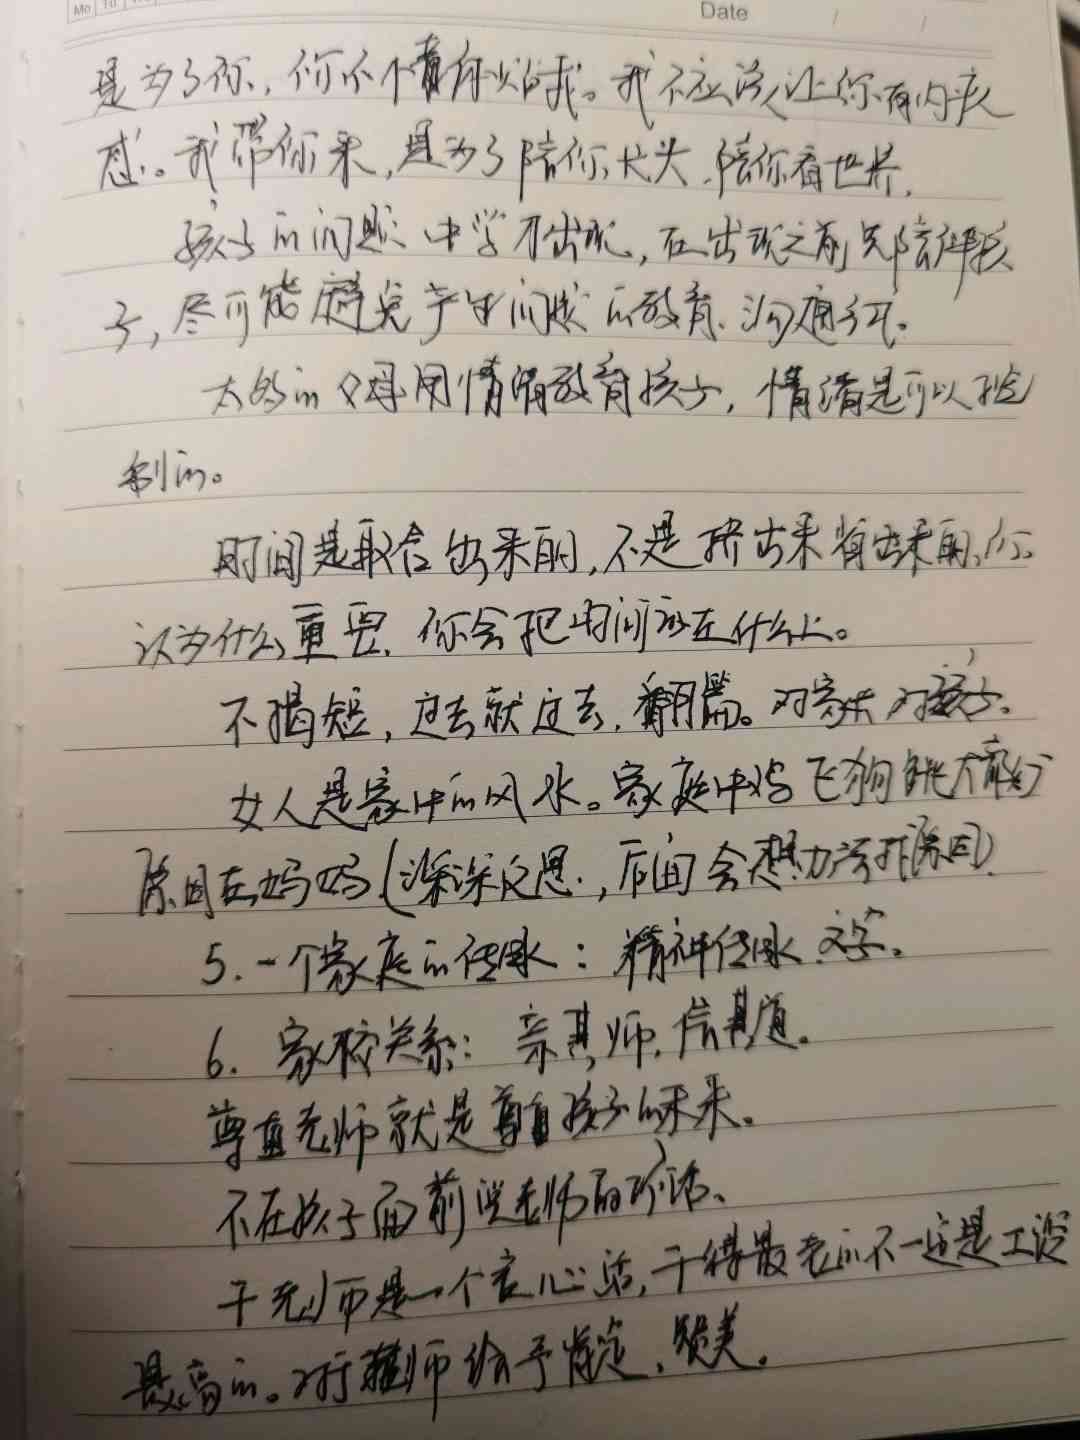 Mo Tu
Date
是为了你，你不懂得我。我不应该让你有内疚
感。我带你来，是为了陪你长大，陪你看世界，
孩子的问题中学才出现，在出现之前先陪伴孩
子，尽可能避免产生问题的教育、沟通方式。
太多的父母用情绪教育孩子，情绪是可以控
制的。
时间是取舍出来的，不是挤出来省出来的，你
认为什么重要，你会把时间放在什么上。
不揭短，过去就过去，翻篇。对家人对孩子。
女人是家中的风水。家庭中鸡飞狗跳大部分
原因在妈妈（深深反思，后面会想办法排除原因）
5.一个家庭的传承：精神传承、文字。
6.家校关系：亲其师，信其道。
尊重老师就是尊重孩子的未来。
不在孩子面前说老师的坏话、
干老师是一个良心活，干得最老的不一定是工资
最高的。对于老师给予肯定、赞美。